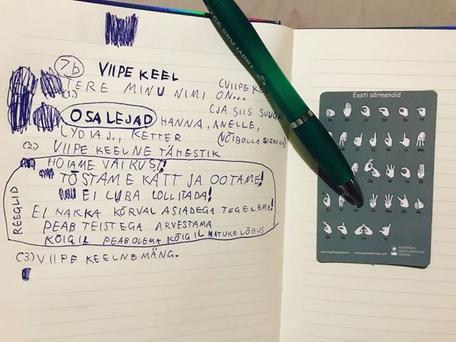 7b VIIPE KEEL
(1) TERE MINU NIMI ON... (VIIPE KE
(JA SIIS SUUGA
OSALEJAD HANNA, ANELLE,
LYDIA J., KETTER (VÕIBOLLA
(2) VIIPE KEELNE TÄHESTIK
REEGLID
HOIAME VAIKUST!
TÕSTAME KÄTT JA OOTAME!
EI LUBA LOLLITADA!
EI HAKKA KÕRVAL ASIADEGA TEGELEMA!
PEAB TEISTEGA ARVESTAMA
KÕIGIL PEAB OLEMA KÕIGIL NATUKE LÕBUS
(3) VIIPE KEELNE MÄNG.
Eesti sõrmendid